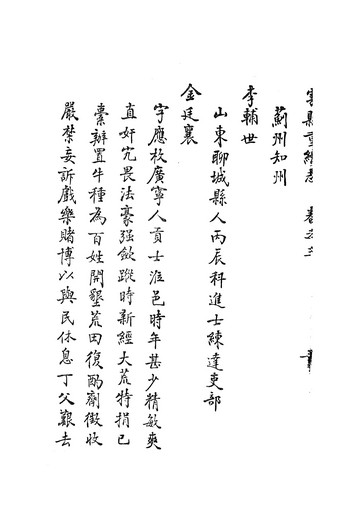 縣重修志 卷之三
薊州知州
李輔世
山東聊城縣人丙辰科進士練達吏部
金廷襄
字應枚廣寧人貢士涖邑時年甚少精敏爽
直奸宄畏法豪强斂蹤時新經大荒特捐己
橐辦置牛種為百姓開墾荒田復酌劑徵收
嚴禁妄訴戲樂賭博以與民休息丁父艱去